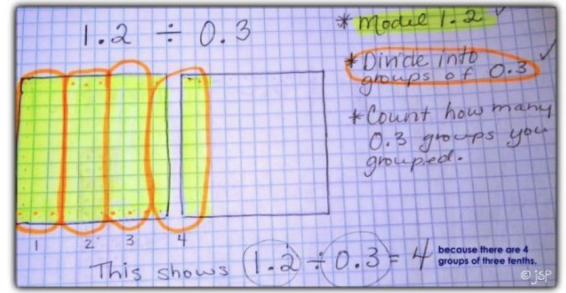 1.2 ÷ 0.3
* Model 1.2 ✓
* Divide into ✓
groups of 0.3
* Count how many
0.3 groups you
grouped.
1 2 3 4
This shows 1.2 ÷ 0.3 = 4
because there are 4
groups of three tenths.
© jSP